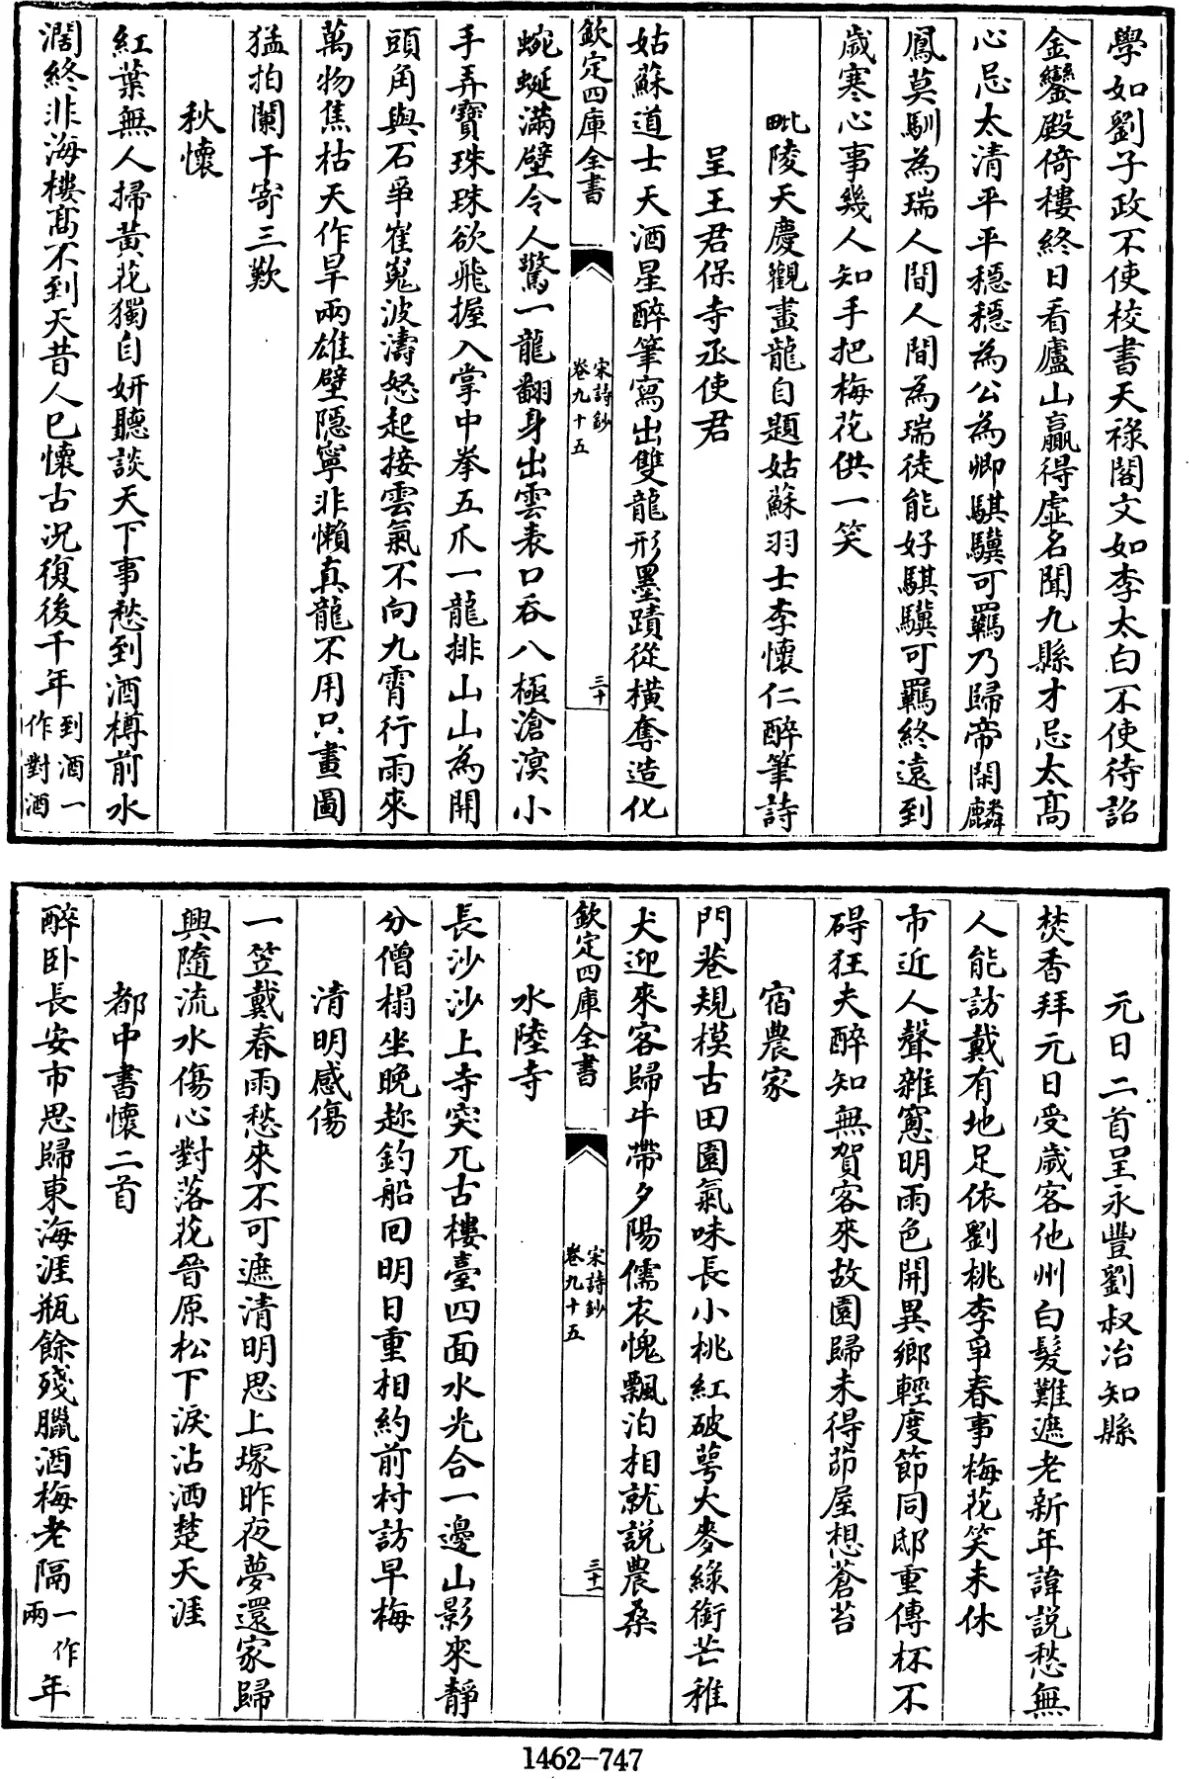 學如劉子政不使校書天祿閣文如李太白不使待詔
金鑾殿倚樓終日看廬山贏得虛名聞九縣才忌太髙
心忌太清平平穩穩為公為卿騏驥可羈乃歸帝閑麟
鳳莫馴為瑞人間人間為瑞徒能好騏驥可羈終遠到
歲寒心事幾人知手把梅花供一笑
毗陵天慶觀畫龍自題姑蘇羽士李懷仁醉筆詩
呈王君保寺丞使君
姑蘇道士天酒星醉筆寫出雙龍形墨蹟從橫奪造化
欽定四庫全書
宋詩鈔
卷九十五
三十
蜿蜒滿壁令人驚一龍翻身出雲表口吞八極滄溟小
手弄寶珠珠欲飛握入掌中拳五爪一龍排山山為開
頭角與石爭崔嵬波濤怒起接雲氣不向九霄行雨來
萬物焦枯天作旱兩雄壁隱寧非懶真龍不用只畫圖
猛拍闌干寄三歎
秋懷
紅葉無人掃黃花獨自妍聽談天下事愁到酒樽前水
濶終非海樓髙不到天昔人已懷古况復後千年到酒一
作對酒
元日二首呈永豐劉叔冶知縣
焚香拜元日受歲客他州白髮難遮老新年諱説愁無
人能訪戴有地足依劉桃李爭春事梅花笑未休
市近人聲雜窻明雨色開異鄉輕度節同邸重傳杯不
碍狂夫醉知無賀客來故園歸未得茆屋想蒼苔
宿農家
門巷規模古田園氣味長小桃紅破萼大麥綠銜芒稚
犬迎來客歸牛帶夕陽儒衣愧飄泊相就説農桑
欽定四庫全書
宋詩鈔
卷九十五
三十一
水陸寺
長沙沙上寺突兀古樓臺四面水光合一邊山影來靜
分僧榻坐晚趂釣船回明日重相約前村訪早梅
清明感傷
一笠戴春雨愁來不可遮清明思上塚昨夜夢還家歸
興隨流水傷心對落花晉原松下淚沾洒楚天涯
都中書懷二首
醉卧長安市思歸東海涯瓶餘殘臘酒梅老隔一作
兩年
1462-747